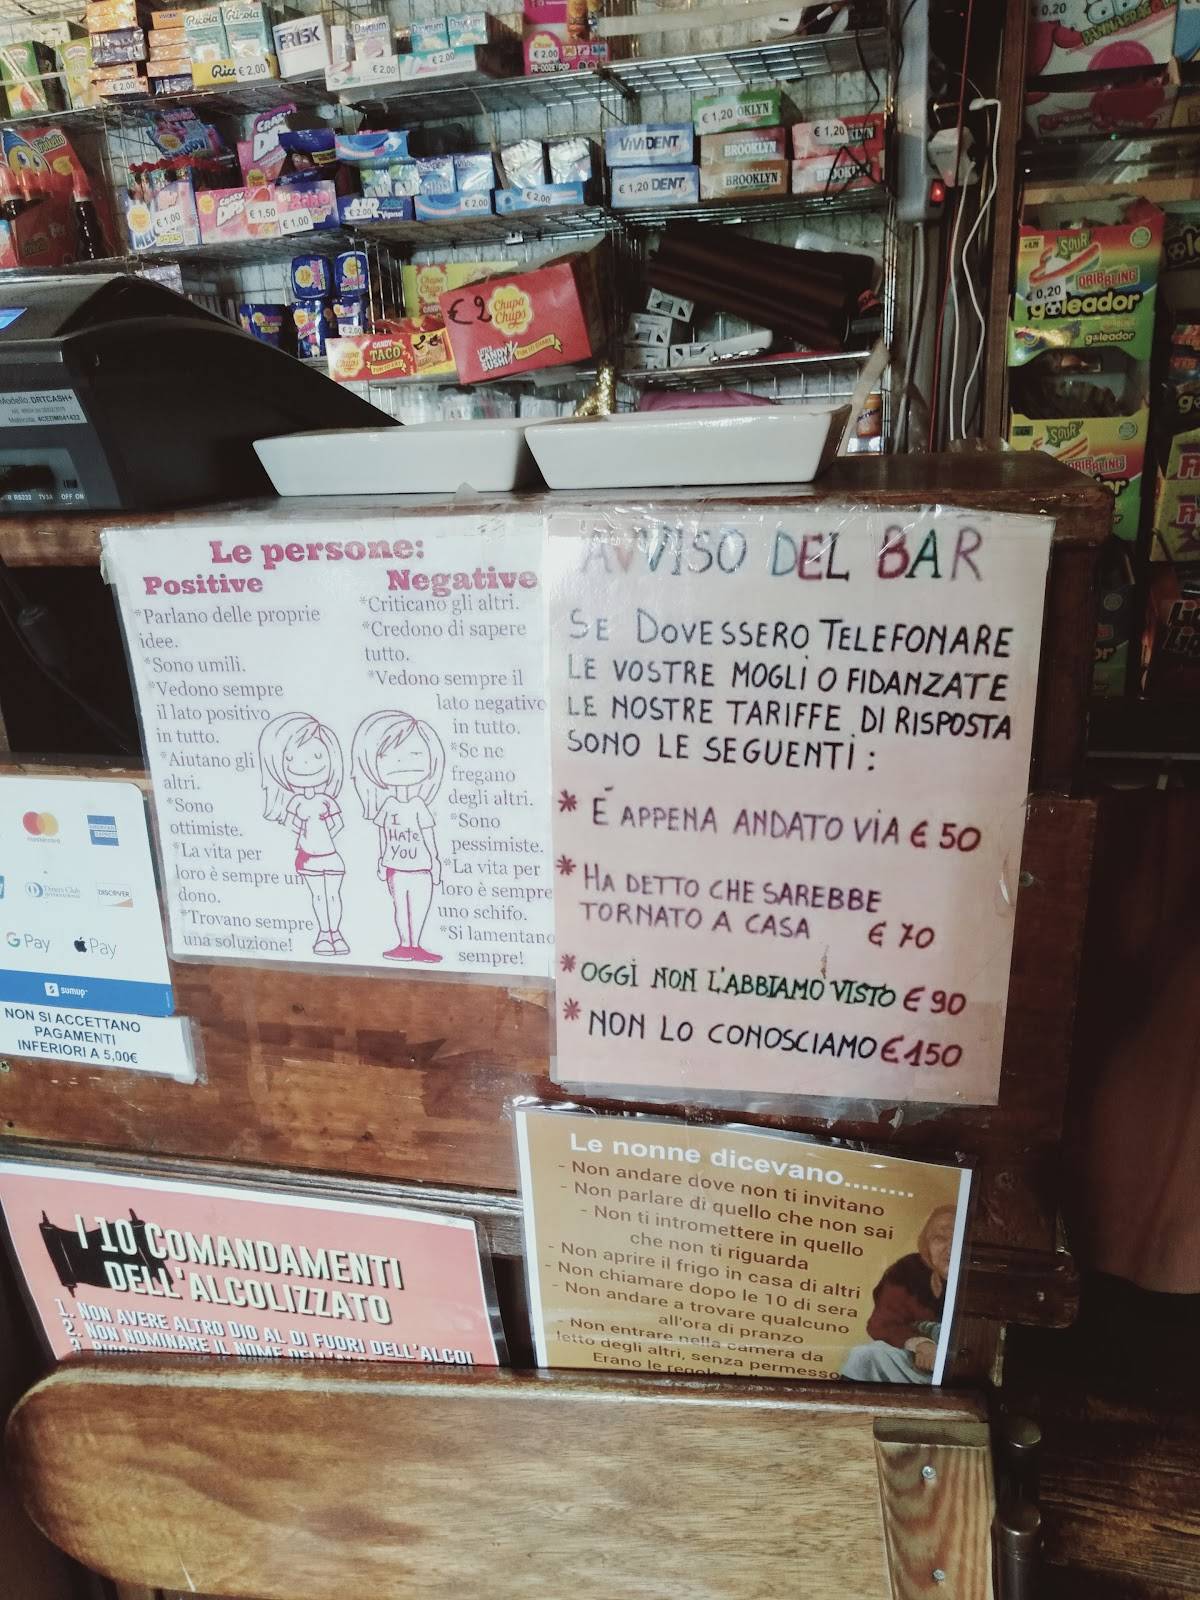 Ricola
Ricola
FRISK
Daygum
€ 2,00
€ 2,00
€ 2,00
€ 2,00
€ 2,00
FR-OOZE POP
€ 0,20
€ 1,20 OKLYN
VIVIDENT
BROOKLYN
€ 1,20
€ 1,20 DENT
BROOKLYN
BROOKLYN
€ 1,00
€ 1,50
€ 1,00
€ 2,00
€ 2,00
€ 2,00
€ 2,00
€ 2
Chupa
Chups
CANDY
TACO
CANDY
SUSHI
FUN TO SHARE
€ 2,00
SOUR
DRIBBLING
€ 0,20
goleador
goleador
SOUR
DRIBBLING
Modello: DRTCASH+
RS232 TV3A OFF ON
Le persone:
Positive
*Parlano delle proprie
idee.
*Sono umili.
*Vedono sempre
il lato positivo
in tutto.
*Aiutano gli
altri.
*Sono
ottimiste.
*La vita per
loro è sempre un
dono.
*Trovano sempre
una soluzione!
Negative
*Criticano gli altri.
*Credono di sapere
tutto.
*Vedono sempre il
lato negativo
in tutto.
*Se ne
fregano
degli altri.
*Sono
pessimiste.
*La vita per
loro è sempre
uno schifo.
*Si lamentano
sempre!
I
HATE
YOU
AVVISO DEL BAR
SE DOVESSERO TELEFONARE
LE VOSTRE MOGLI O FIDANZATE
LE NOSTRE TARIFFE DI RISPOSTA
SONO LE SEGUENTI :
* É APPENA ANDATO VIA € 50
* HA DETTO CHE SAREBBE
TORNATO A CASA € 70
* OGGI NON L'ABBIAMO VISTO € 90
* NON LO CONOSCIAMO € 150
mastercard
AMERICAN EXPRESS
Diners Club
DISCOVER
G Pay
Pay
sumup
NON SI ACCETTANO
PAGAMENTI
INFERIORI A 5,00€
I 10 COMANDAMENTI
DELL'ALCOLIZZATO
1. NON AVERE ALTRO DIO AL DI FUORI DELL'ALCOL
2. NON NOMINARE IL NOME
Le nonne dicevano........
- Non andare dove non ti invitano
- Non parlare di quello che non sai
- Non ti intromettere in quello
che non ti riguarda
- Non aprire il frigo in casa di altri
- Non chiamare dopo le 10 di sera
- Non andare a trovare qualcuno
all'ora di pranzo
- Non entrare nella camera da
letto degli altri, senza permesso
Erano le regole